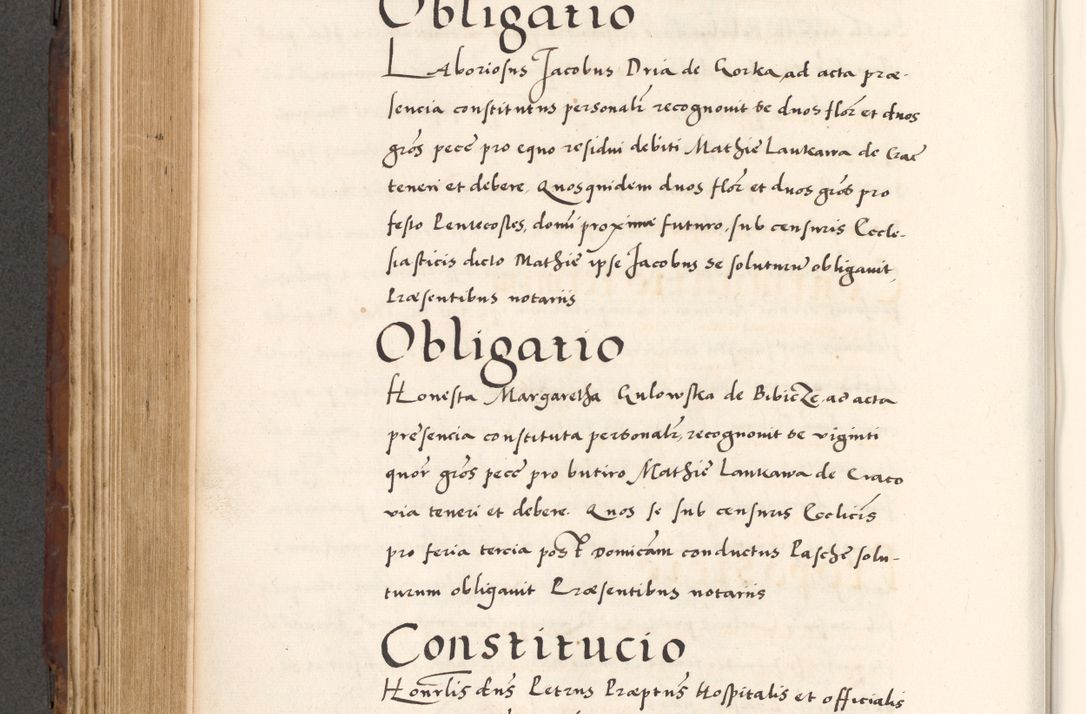 Obligatio
Laboriosus Jacobus Dria de Gorka ad acta præ-
sencia constitutus personalr recognouit se duos flor et duos
gros pece pro equo residui debiti Mathie Laukawa de Crac
teneri et debere. Quosquidem duos flor et duos gros pro
festo Pentecostes, domi proxime futuro, sub censuris Eccle-
siasticis dicto Mathie ipse Jacobus se soluturu obligauit
Præsentibus notariis
Obligatio
Honesta Margaretha Gulowska de Bibicze, ad acta
presencia constituta personalr, recognouit se viginti
quor gros pece pro butiro Mathie Laukawa de Craco
via teneri et debere. Quos se sub censuris Ecclicis
pro feria tercia post Domicam conductus Pasche solu-
turum obligauit Præsentibus notariis
Constitucio
Honrlis dns Petrus Præptus Hospitalis et officialis